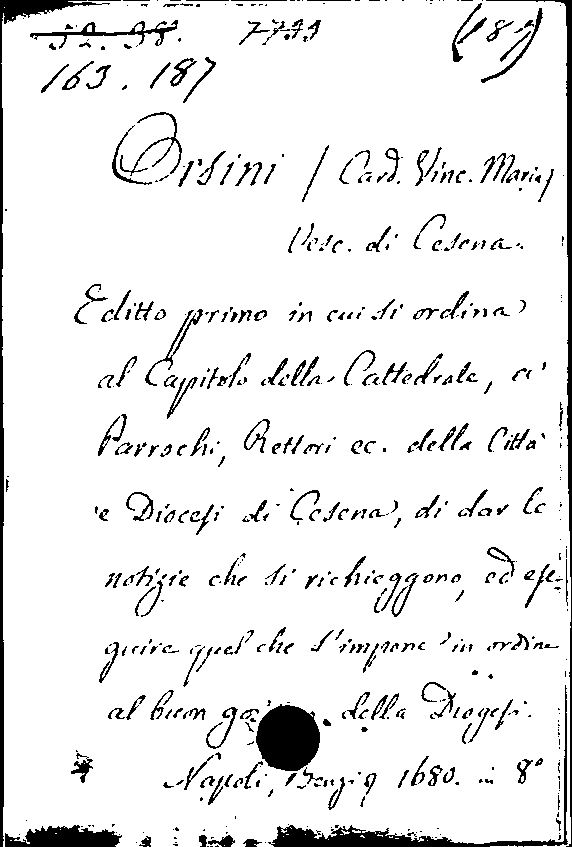 52. 38. 7799 (187)
163. 187
Orsini / Card. Vinc. Maria /
Vesc. di Cesena.
Editto primo in cui si ordina
al Capitolo della Cattedrale, a'
Parrochi, Rettori ec. della Città
e Diocesi di Cesena, di dar le
notizie che si richieggono, ed ese-
guire quel che s'impone in ordine
al buon della Diogesi.
Napoli, 1680. in 8°